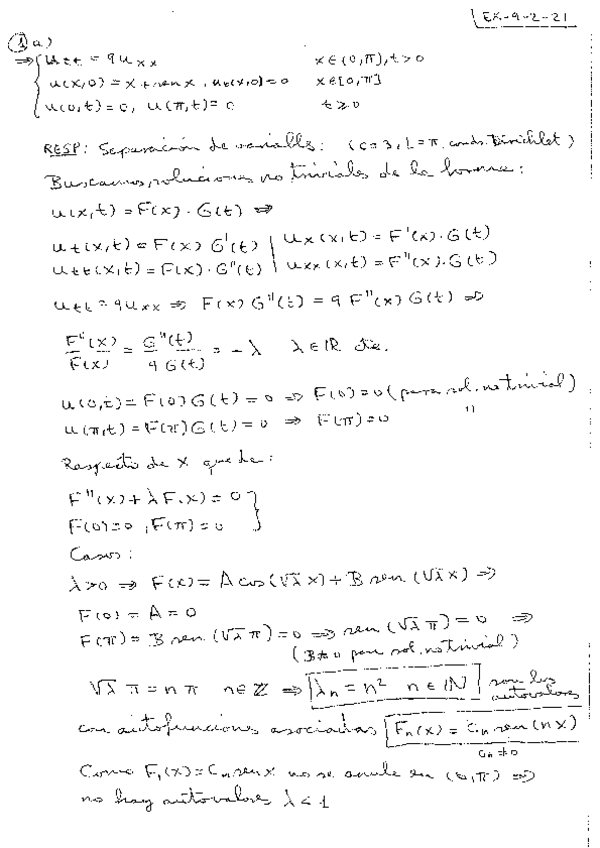 EX-9-2-21
① a)
⇒ { u_tt = 9u_xx    x∈(0,π), t>0
u(x,0) = x + sen x, u_t(x,0)=0    x∈[0,π]
u(0,t)=0, u(π,t)=0    t≥0
RESP: Separación de variables: (c=3, L=π, conds. Dirichlet)
Buscamos soluciones no triviales de la forma:
u(x,t) = F(x)·G(t) ⇒
u_t(x,t) = F(x) G'(t) | u_x(x,t) = F'(x)·G(t)
u_tt(x,t) = F(x)·G''(t) | u_xx(x,t) = F''(x)·G(t)
u_tt = 9u_xx ⇒ F(x) G''(t) = 9 F''(x) G(t) ⇒
F''(x)/F(x) = G''(t)/9G(t) = -λ    λ∈ℝ cte.
u(0,t) = F(0)G(t) = 0 ⇒ F(0)=0 (para sol. no trivial)
u(π,t) = F(π)G(t) = 0 ⇒ F(π)=0    "
Respecto de x queda:
F''(x) + λF(x) = 0
F(0)=0, F(π)=0 }
Casos:
λ>0 ⇒ F(x) = A cos(√λ x) + B sen(√λ x) ⇒
F(0) = A = 0
F(π) = B sen(√λ π) = 0 ⇒ sen(√λ π) = 0 ⇒
(B≠0 para sol. no trivial)
√λ π = nπ    n∈ℤ ⇒ λ_n = n²    n∈ℕ son los autovalores
con autofunciones asociadas F_n(x) = C_n sen(nx)
C_n≠0
Como F_1(x) = C_n sen x no se anula en (0,π) ⇒
no hay autovalores λ<1